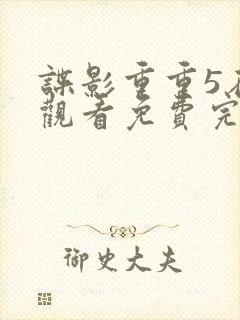 諜影重重5
觀看免費完
御史大夫